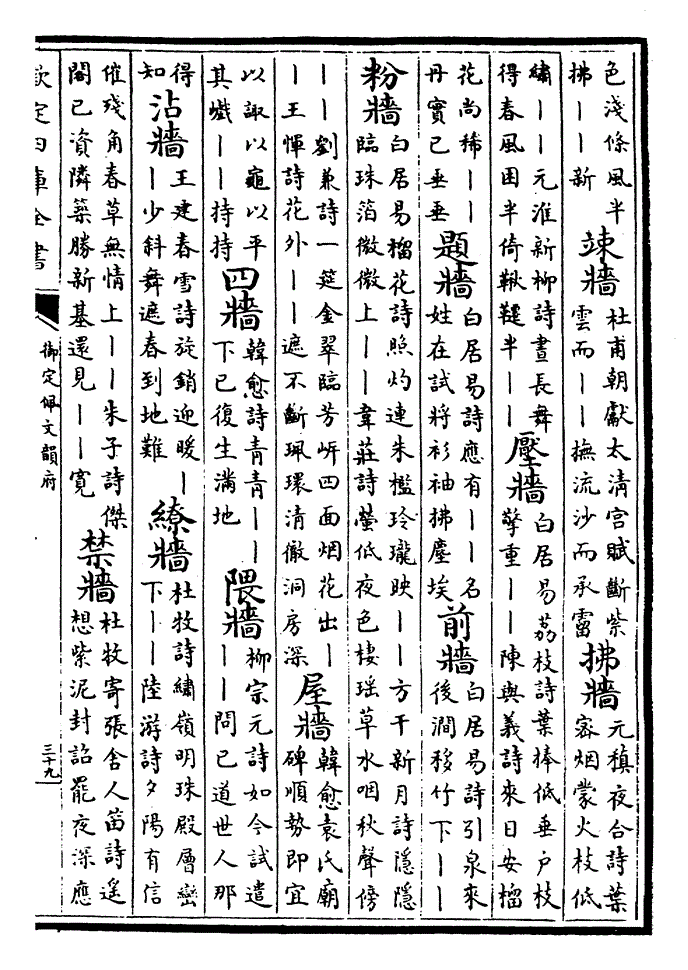 色淺條風半拂丨丨新 竦牆 杜甫朝獻太清宫賦斷紫雲而丨丨撫流沙而承霤 拂牆 元稹夜合詩葉密烟蒙火枝低
繡丨丨元淮新柳詩晝長舞得春風困半倚鞦韆半丨丨 壓牆 白居易荔枝詩葉捧低垂戸枝擎重丨丨陳與義詩來日安榴
花尚稀丨丨丹實已垂垂 題牆 白居易詩應有丨丨名姓在試將衫袖拂塵埃 前牆 白居易詩引泉來後澗移竹下丨丨
粉牆 白居易榴花詩照灼連朱檻玲瓏映丨丨方干新月詩隱隱臨珠箔微微上丨丨韋莊詩螢低夜色棲瑶草水咽秋聲傍
丨丨劉兼詩一筵金翠臨芳岸四面烟花出丨丨王惲詩花外丨丨遮不斷珮環清徹洞房深 屋牆 韓愈袁氏廟碑順勢即宜
以諏以龜以平其巇丨丨持持 四牆 韓愈詩青青丨丨下已復生滿地 隈牆 柳宗元詩如今試遣丨丨問已道世人那
得知 沾牆 王建春雪詩旋銷迎暖丨丨少斜舞遮春到地難 繚牆 杜牧詩繡嶺明珠殿層巒下丨丨陸游詩夕陽有信
催殘角春草無情上丨丨朱子詩傑閣已資隣築勝新基還見丨丨寛 禁牆 杜牧寄張舍人笛詩遥想紫泥封詔罷夜深應
欽定四庫全書
御定佩文韻府
三十九